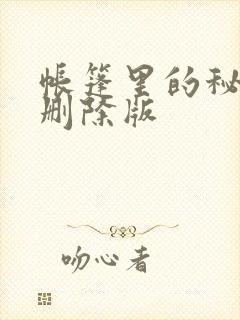 帐篷里的秘
删除版
吻心者